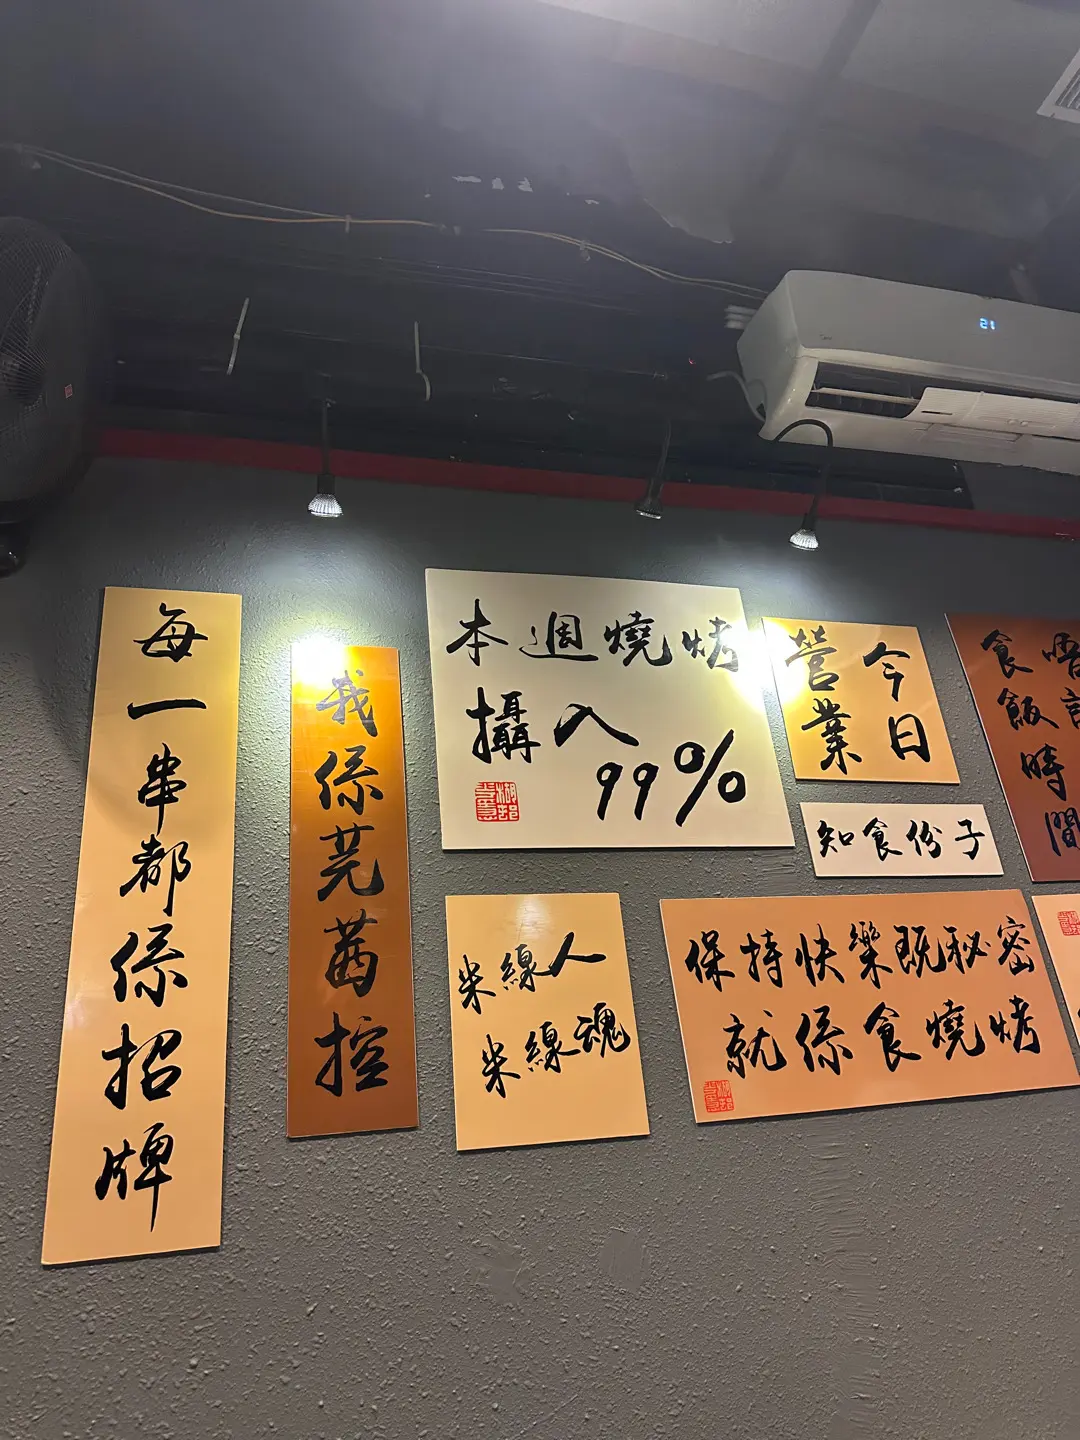 每一串都係招牌
我係芫茜控
本週燒烤
攝入
99%
今日
營業
知食份子
食飯時間
米線人
米線魂
保持快樂既秘密
就係食燒烤
21